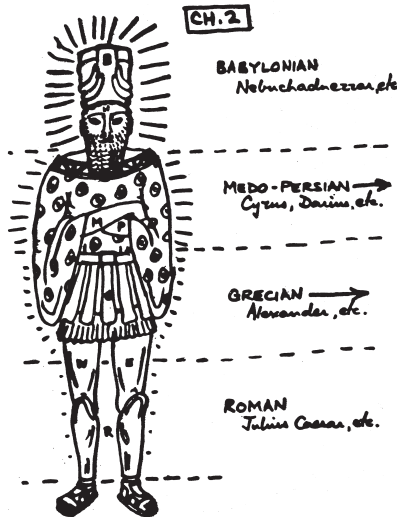 CH.2
BABYLONIAN
Nebuchadnezzar, etc
MEDO-PERSIAN
Cyrus, Darius, etc.
GRECIAN
Alexander, etc.
ROMAN
Julius Caesar, etc.
B
N
M P
G
W E
R